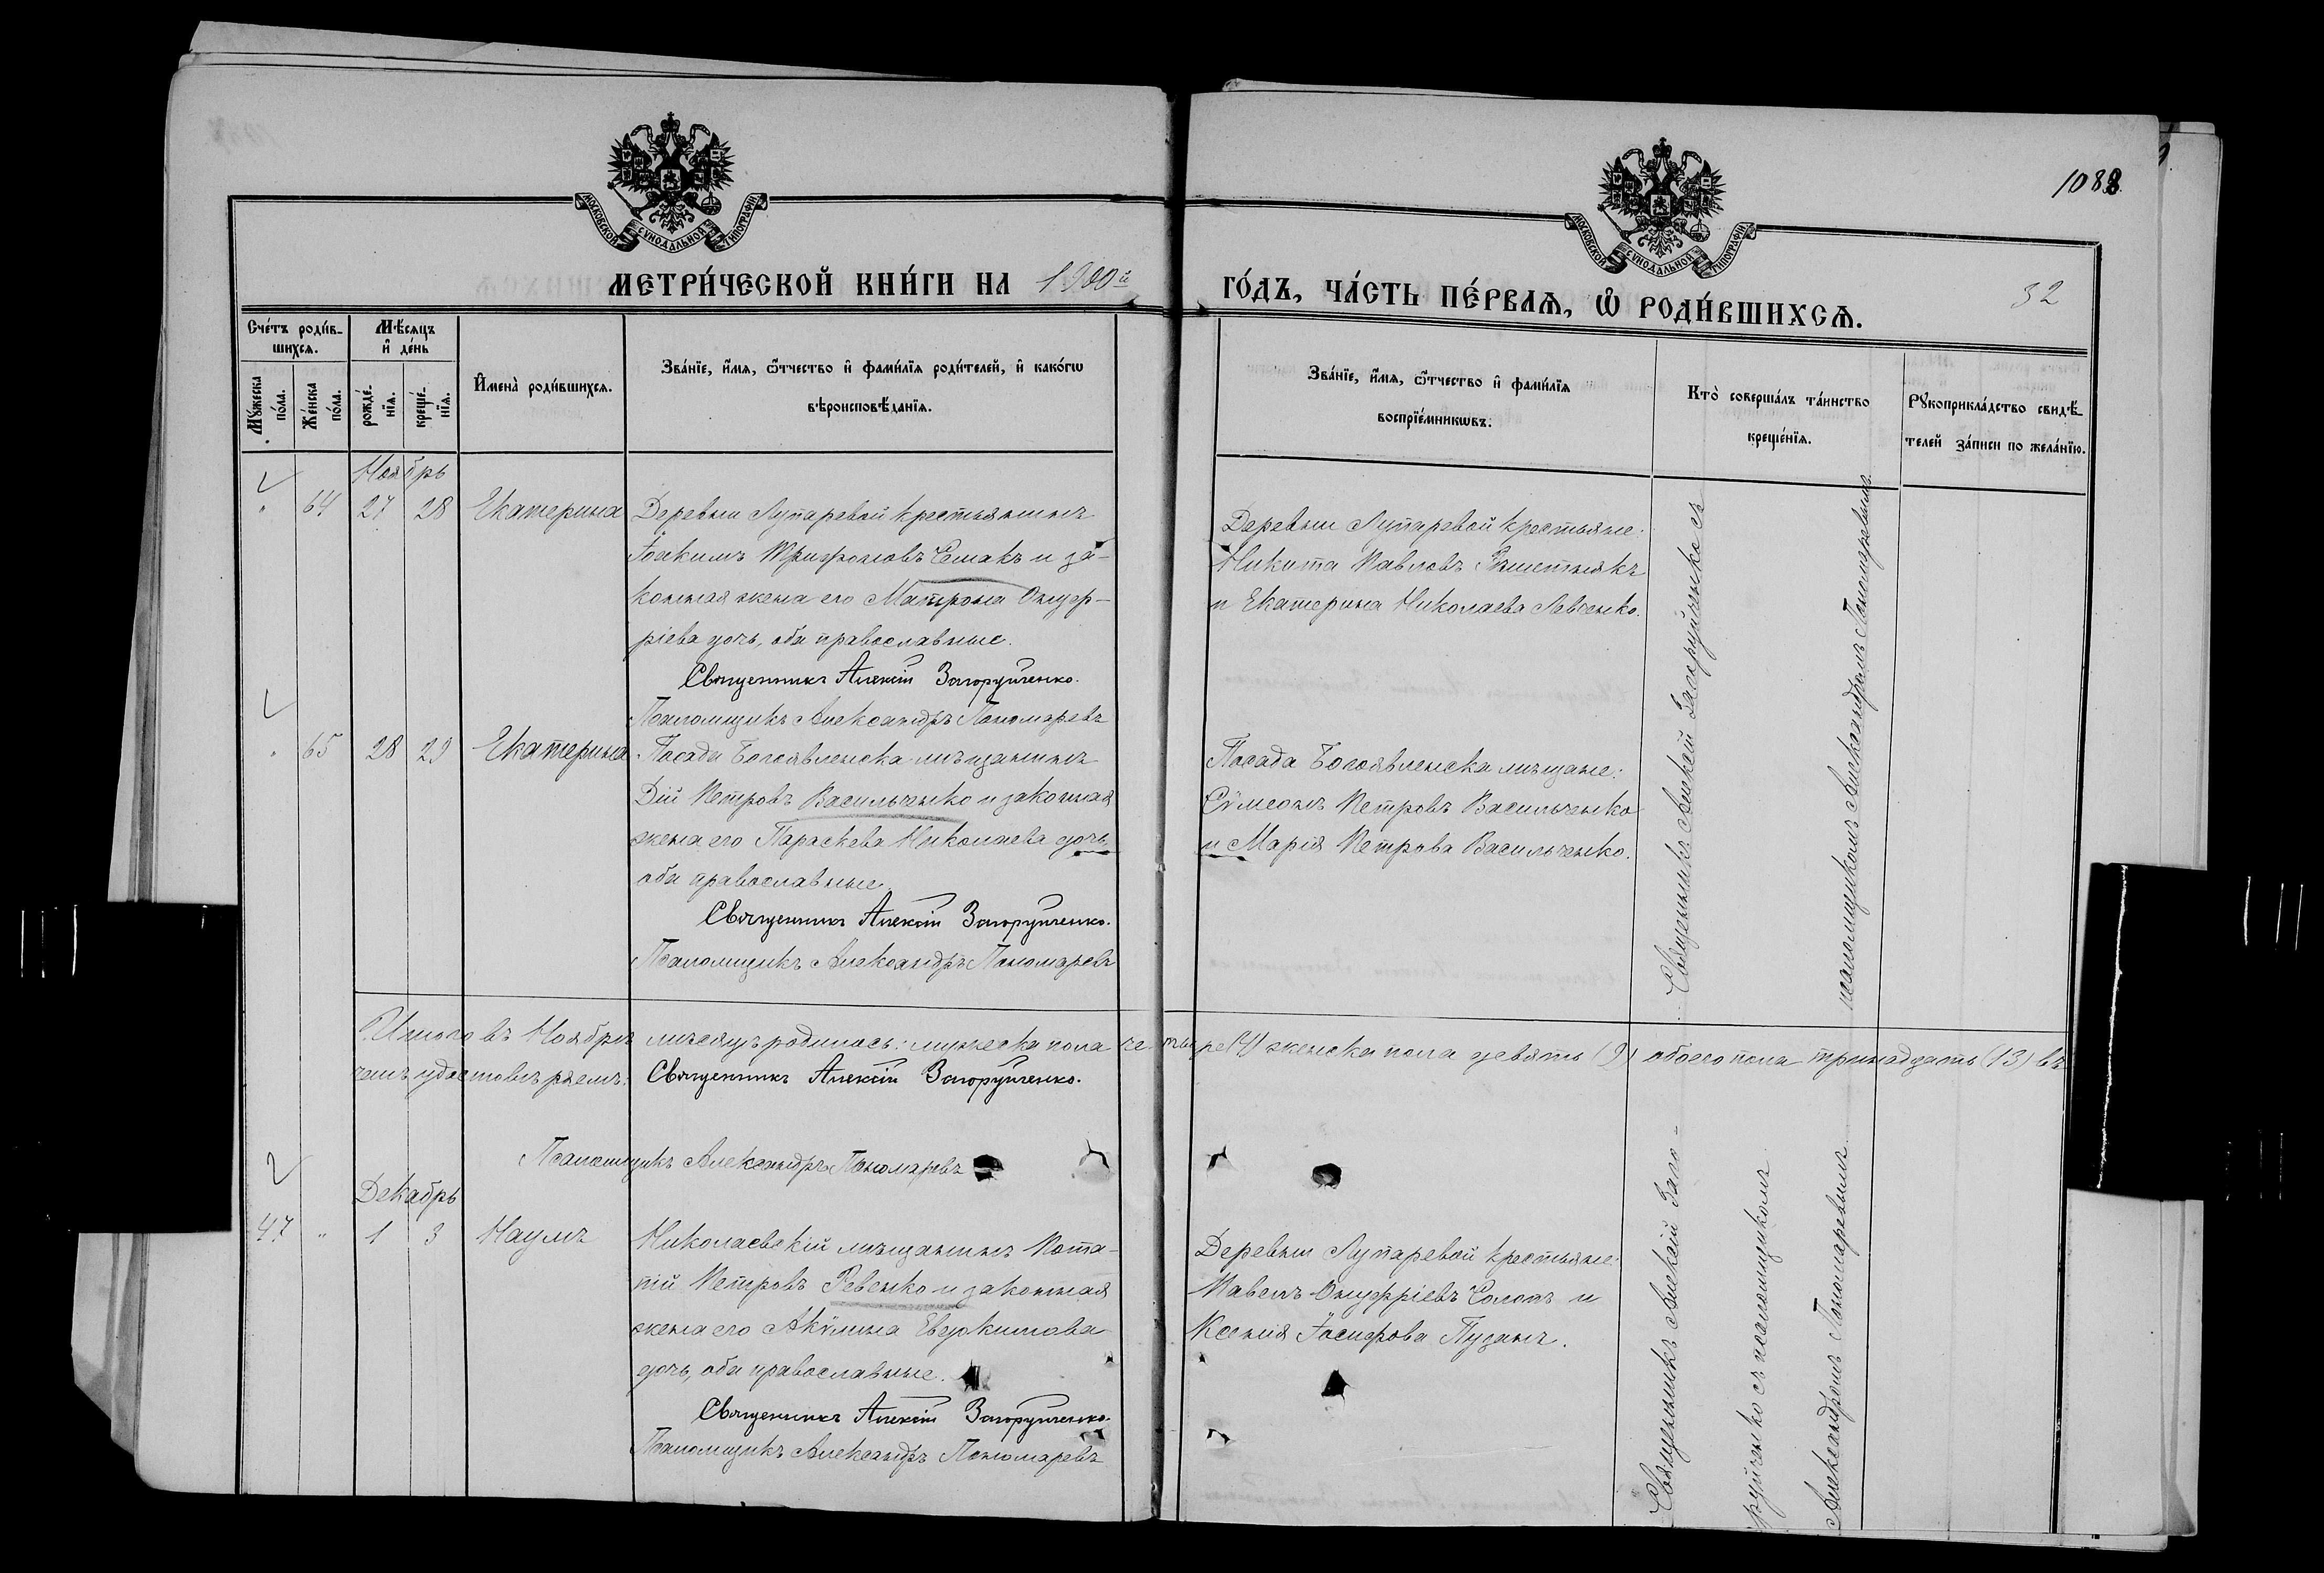 МОСКОВСКОЙ СѴНОДАЛЬНОЙ ТИПОГРАФІИ
МОСКОВСКОЙ СѴНОДАЛЬНОЙ ТИПОГРАФІИ
1088
МЕТРИ́ЧЕСКОЙ КНИ́ГИ НА 1900й
ГО́ДЪ, ЧА́СТЬ ПЕ́РВАѦ, Ѡ҆ РОДИ́ВШИХСѦ.
32
Сче́тъ роди́в-
шихсѧ.
Мꙋ́жеска
по́ла.
Же́нска
по́ла.
Мѣ́сѧцъ
и҆ де́нь
рожде́-
нїѧ.
креще́-
нїѧ.
И҆мена̀ роди́вшихсѧ.
Зва́нїе, и҆́мѧ, ѻ҆́тчество и҆ фами́лїѧ роди́телей, и҆ како́гѡ
вѣроисповѣ́данїѧ.
Зва́нїе, и҆́мѧ, ѻ҆́тчество и҆ фами́лїѧ
воспрїе́мникѡвъ.
Кто̀ соверша́лъ та́инство
креще́нїѧ.
Рꙋкоприкла́дство свидѣ́-
телей за́писи по жела́нїю.
Ноябрь
64 27 28 Екатерина
Деревни Лупаревой крестьянинъ
Іоакимъ Трифоновъ Семакъ и за-
конная жена его Матрона Онуф-
ріева дочь, оба православные.
Священникъ Алексій Загоруйченко.
Псаломщикъ Александръ Пономаревъ
Деревни Лупаревой крестьяне:
Никита Павловъ Решетнякъ
и Екатерина Николаева Левченко.
Священникъ Алексій Загоруйченко съ
псаломщикомъ Александромъ Пономаревымъ.
65 28 29 Екатерина
Посада Богоявленска мѣщанинъ
Дій Петровъ Васильченко и законная
жена его Параскева Николаева дочь,
оба православные.
Священникъ Алексій Загоруйченко.
Псаломщикъ Александръ Пономаревъ
Посада Богоявленска мѣщане:
Сѵмеонъ Петровъ Васильченко
и Марія Петрова Васильченко.
Итого въ Ноябрѣ мѣсяцѣ родилось: мужеска пола четыре (4) женска пола девять (9) обоего пола тринадцать (13) въ
чемъ удостовѣряемъ: Священникъ Алексій Загоруйченко.
Псаломщикъ Александръ Пономаревъ
Декабрь
47 " 1 3 Наумъ
Николаевскій мѣщанинъ Пота-
пій Петровъ Ревенко и законная
жена его Акѵлина Евдокимова
дочь, оба православные.
Священникъ Алексій Загоруйченко.
Псаломщикъ Александръ Пономаревъ
Деревни Лупаревой крестьяне:
Павелъ Онуфріевъ Солопъ и
Ксенія Іосифова Пузанъ.
Священникъ Алексій Заго-
руйченко съ псаломщикомъ
Александромъ Пономаревымъ